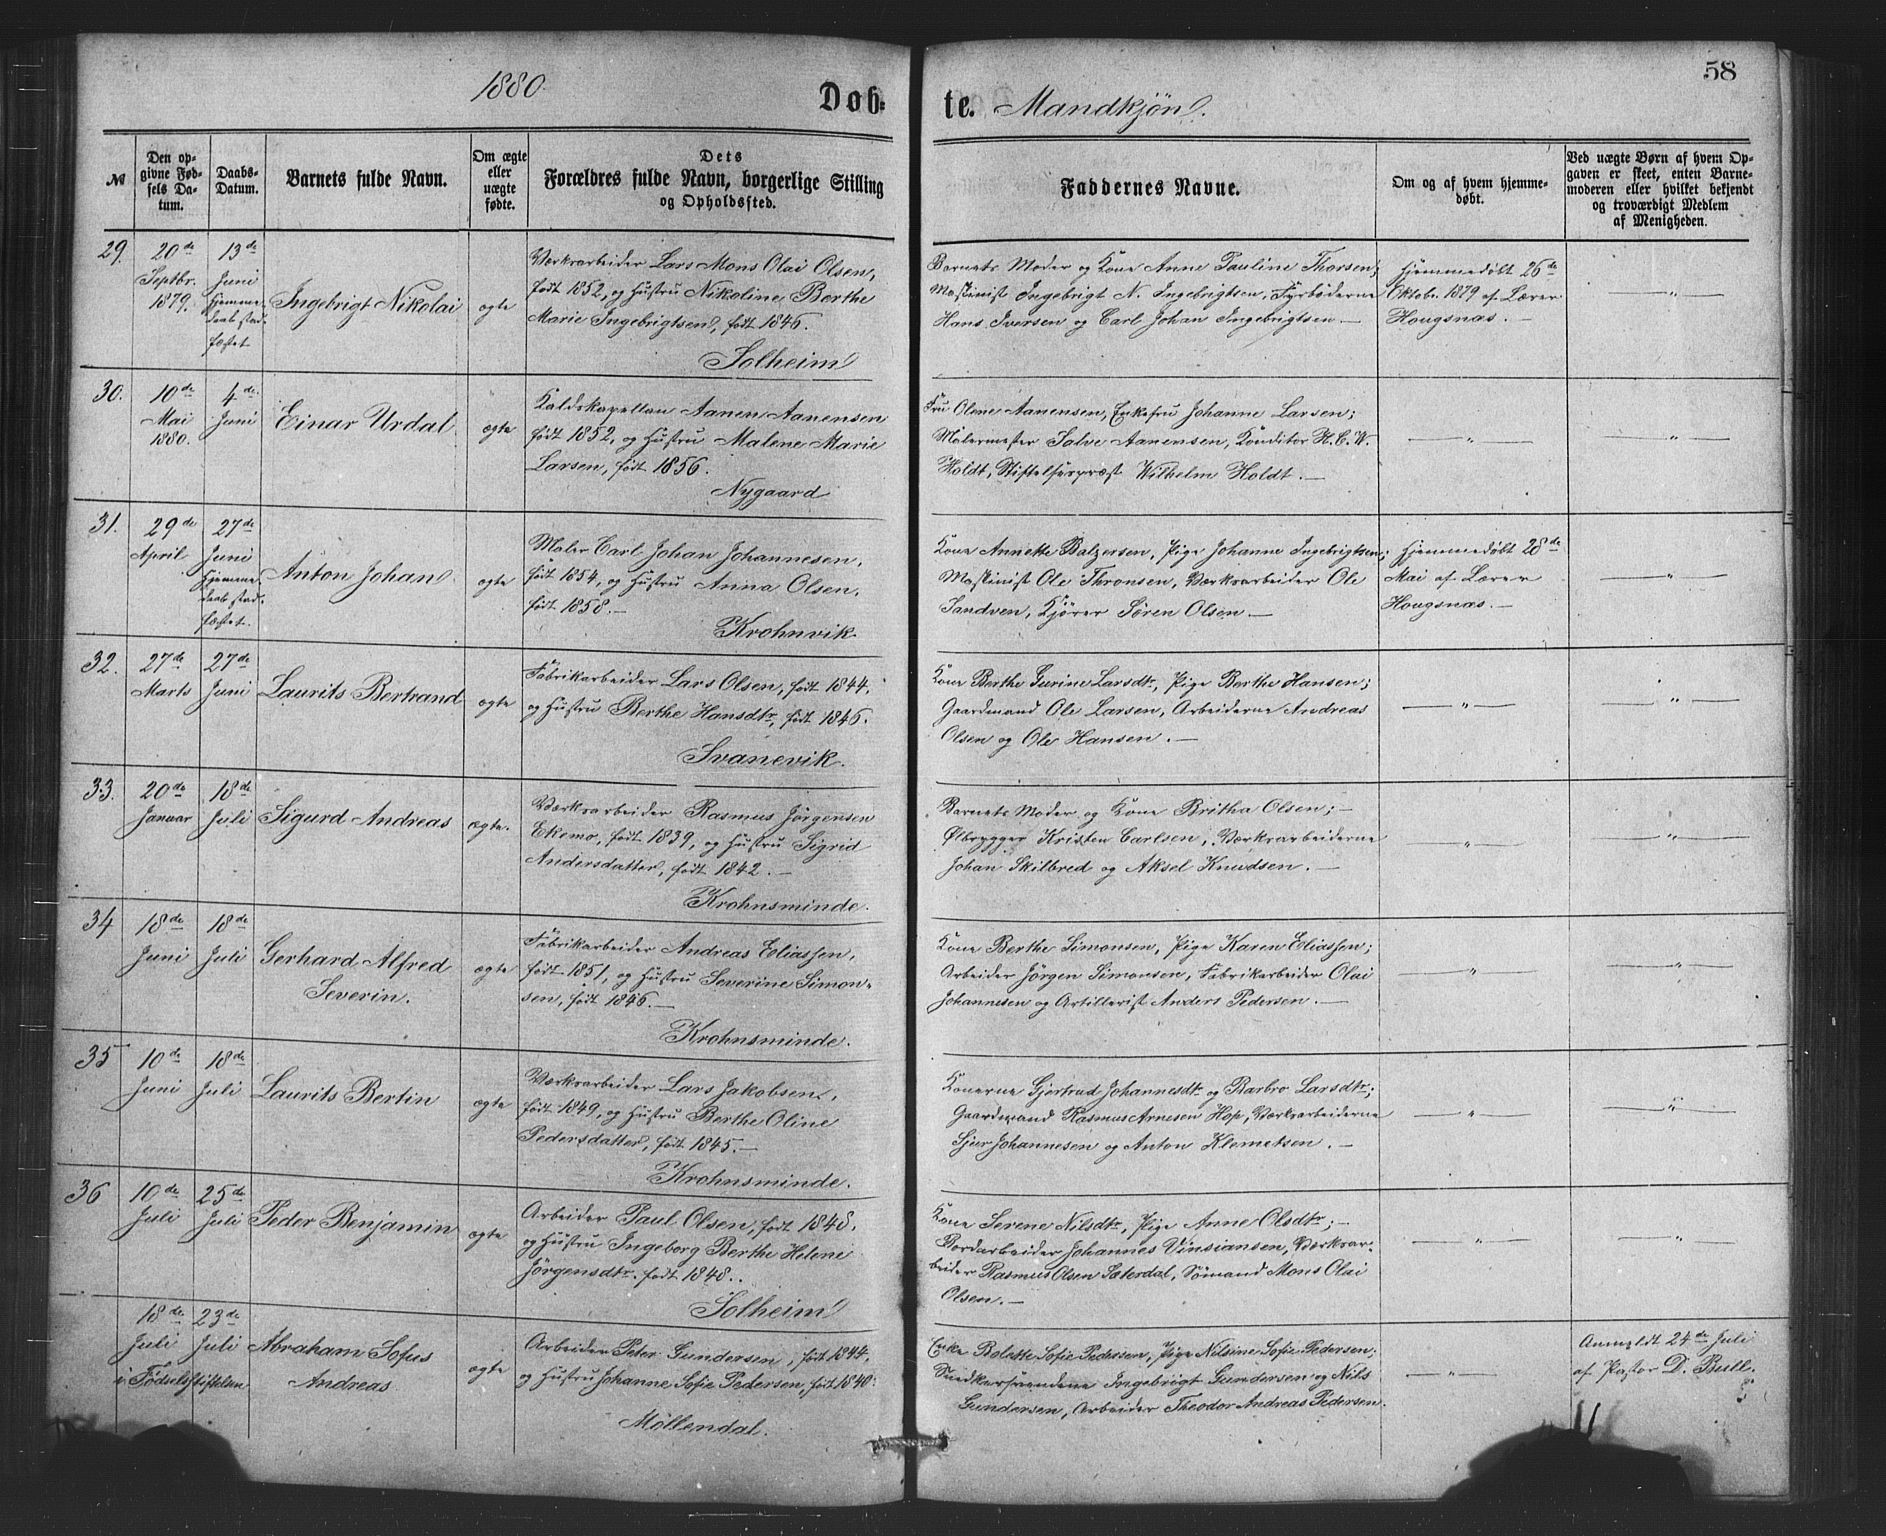 1880.
Døb-
te. Mandkjön.
58
№
Den op-
givne Fød-
sels Da-
tum.
Daabs-
Datum.
Barnets fulde Navn.
Om ægte
eller
uægte
fødte.
Dets
Forældres fulde Navn, borgerlige Stilling
og Opholdssted.
Faddernes Navne.
Om og af hvem hjemme-
døbt.
Ved uægte Børn af hvem Op-
gaven er skeet, enten Barne-
moderen eller hvilket bekjendt
og troværdigt Medlem
af Menigheden.
29.
20de
Septbr.
1879.
13de
Juni
hjemme-
daab stad-
fæstet
Ingebrigt Nikolai
ægte
Værksarbeider Lars Mons Olai Olsen,
født 1852, og Hustru Nikoline Berthe
Marie Ingebrigtsen, født 1846.
Solheim
Barnets Moder og Kone Anne Pauline Thorsen;
Maskinist Ingebrigt N. Ingebrigtsen, Fyrbøderne
Hans Iversen og Carl Johan Ingebrigtsen. —
Hjemmedøbt 26de
Oktobr. 1879 af Lærer
Hougsnæs. —
— " —
30.
10de
Mai
1880.
4de
Juni
Einar Urdal
ægte
Kaldskapellan Aanen Aanensen
født 1852, og Hustru Malene Marie
Larsen, født 1856.
Nygaard
Fru Olene Aanensen, Enkefru Johanne Larsen;
Malermester Salve Aanensen, Konditor H. C. W.
Holdt, Stiftelsespræst Wilhelm Holdt. —
— " —
— " —
31.
29de
April
27de
Juni
hjemme-
daab stad-
fæstet.
Anton Johan
ægte
Maler Carl Johan Johannesen,
født 1854, og Hustru Anna Olsen,
født 1858. —
Krohnvik
Kone Annette Balzersen, Pige Johanne Ingebrigtsen;
Maskinist Ole Thronsen, Værksarbeider Ole
Sandven, Kjører Sören Olsen —
Hjemmedøbt 28de
Mai af Lærer
Hougsnæs. —
— " —
32.
27de
Marts
27de
Juni
Laurits Bertrand
ægte
Fabrikarbeider Lars Olsen, født 1844,
og Hustru Berthe Hansdtr, født 1846.
Svanevik.
Kone Berthe Gurine Larsdtr, Pige Berthe Hansen;
Gaardmand Ole Larsen, Arbeiderne Andreas
Olsen og Ole Hansen. —
— " —
— " —
33.
20de
Januar
18de
Juli
Sigurd Andreas
ægte.
Værksarbeider Rasmus Jörgensen
Ekemo, født 1839, og Hustru Sigrid
Andersdatter, født 1842. —
Krohnsminde.
Barnets Moder og Kone Britha Olsen; —
Ølbrygger Kristen Carlsen, Værksarbeiderne
Johan Skilbred og Aksel Knudsen. —
— " —
— " —
34
18de
Juni
18de
Juli
Gerhard Alfred
Severin.
ægte
Fabrikarbeider Andreas Eliassen,
født 1851, og Hustru Severine Simon-
sen, født 1846. —
Krohnsminde.
Kone Berthe Simonsen, Pige Karen Eliassen;
Arbeider Jörgen Simonsen, Fabrikarbeider Olai
Johannesen og Artillerist Anders Pedersen. —
— " —
— " —
35
10de
Juni
18de
Juli
Laurits Bertin
ægte
Værksarbeider Lars Jakobsen,
født 1849, og Hustru Berthe Oline
Pedersdatter, født 1845. —
Krohnsminde.
Konerne Gjertrud Johannesdtr og Barbro Larsdtr;
Gaardmand Rasmus Arnesen Hop, Værksarbeiderne
Sjur Johannesen og Anton Klemetsen. —
— " —
— " —
36
10de
Juli
25de
Juli
Peder Benjamin
ægte
Arbeider Paul Olsen, født 1848,
og Hustru Ingeborg Berthe Helene
Jörgensdtr. født 1848..
Solheim
Kone Serene Nilsdtr, Pige Anne Olsdtr; —
Bordarbeider Johannes Vinsiansen, Værksar-
beider Rasmus Olsen Sæterdal, Sömand Mons Olai
Olsen. —
— " —
— " —
18de
Juli
i Fødselsstiftelsen
23de
Juli
Abraham Sofus
Andreas
ægte
Arbeider Peter Gundersen, født 1844,
og Hustru Johanne Sofie Pedersen, født 1840.
Möllendal.
Enke Bolette Sofie Pedersen, Pige Nilsine Sofie Pedersen;
Ingebrigt Gundersen og Nils
Gundersen, Arbeider Theodor Andreas Pedersen.
— " —
Anmeldt 24de Juli
af Pastor D. Bull.